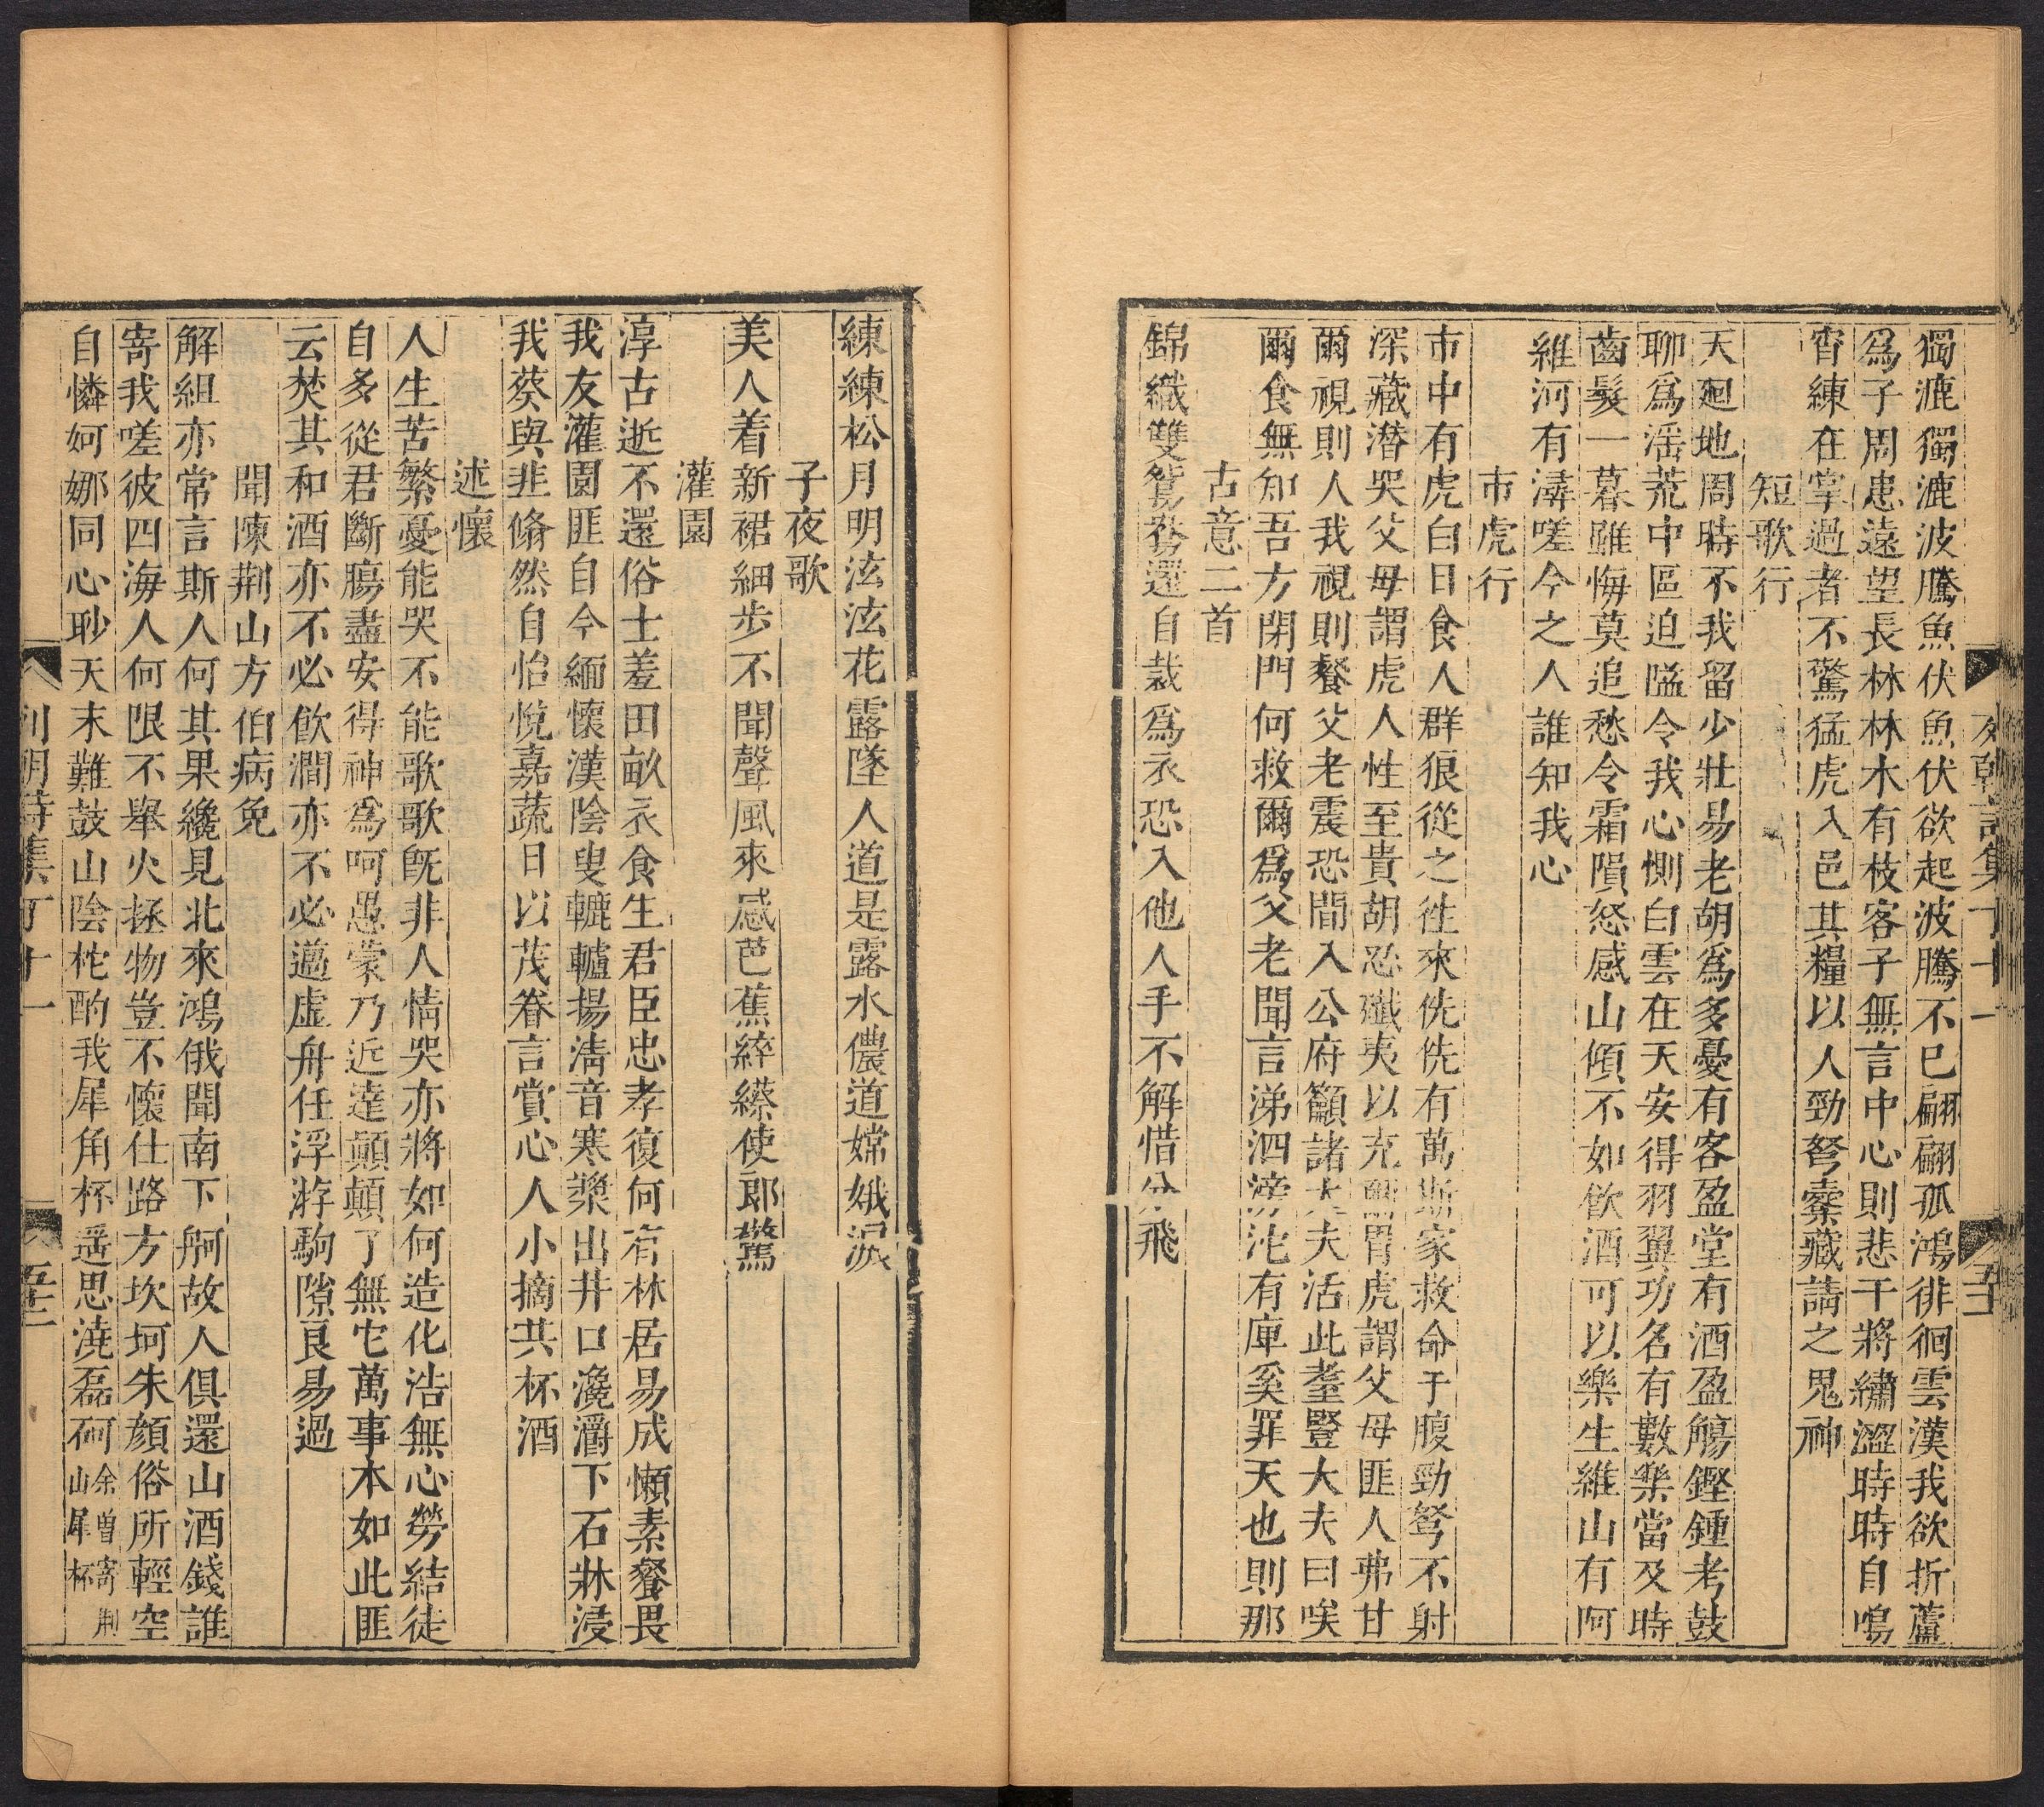 獨漉獨漉波騰魚伏魚伏欲起波騰不已翩翩孤鴻徘徊雲漢我欲折蘆
爲子周患遠望長林林木有枝客子無言中心則悲干將繡澀時時自鳴
宵練在掌過者不驚猛虎入邑其糧以人勁弩櫜藏請之鬼神
短歌行
天廻地周時不我留少壯易老胡爲多憂有客盈堂有酒盈觴鏗鍾考鼓
聊爲滛荒中區迫隘令我心惻白雲在天安得羽翼功名有數樂當及時
齒髮一暮雖悔莫追愁令霜隕怒感山傾不如飲酒可以樂生維山有阿
維河有潯嗟今之人誰知我心
市虎行
市中有虎白日食人群狼從之徃來侁侁有萬斯家救命于腹勁弩不射
深藏潛哭父母謂虎人性至貴胡忍殲夷以充爾胃虎謂父母匪人弗甘
爾視則人我視則餐父老震恐間入公府籲諸大夫活此耋豎大夫曰唉
爾食無知吾方閉門何救爾爲父老聞言涕泗滂沱有庫奚罪天也則那
古意二首
錦織雙鴛鴦還自裁爲衣恐入他人手不解惜分飛
列朝詩集丁十一
練練松月明泫泫花露墜人道是露水儂道嫦娥淚
子夜歌
美人着新裙細步不聞聲風來感芭蕉綷縩使郎驚
灌園
淳古逝不還俗士羞田畝衣食生君臣忠孝復何有林居易成懶素餐畏
我友灌園匪自今緬懷漢陰叟轆轤揚淸音寒漿出井口瀺灂下石牀浸
我葵與韭翛然自怡悅嘉蔬日以茂眷言賞心人小摘共杯酒
述懷
人生苦繁憂能哭不能歌歌旣非人情哭亦將如何造化浩無心勞結徒
自多從君斷膓盡安得神爲呵愚蒙乃近達顛顛了無它萬事本如此匪
云焚其和酒亦不必飲澗亦不必邁虛舟任浮游駒隙良易過
聞陳荆山方伯病免
解組亦常言斯人何其果纔見北來鴻俄聞南下舸故人俱還山酒錢誰
寄我嗟彼四海人何限不舉火拯物豈不懷仕路方坎坷朱顔俗所輕空
自憐妸娜同心眇天末難鼓山陰柁酌我犀角杯遥思澆磊砢余曾寄荆山犀杯
列朝詩集丁十一